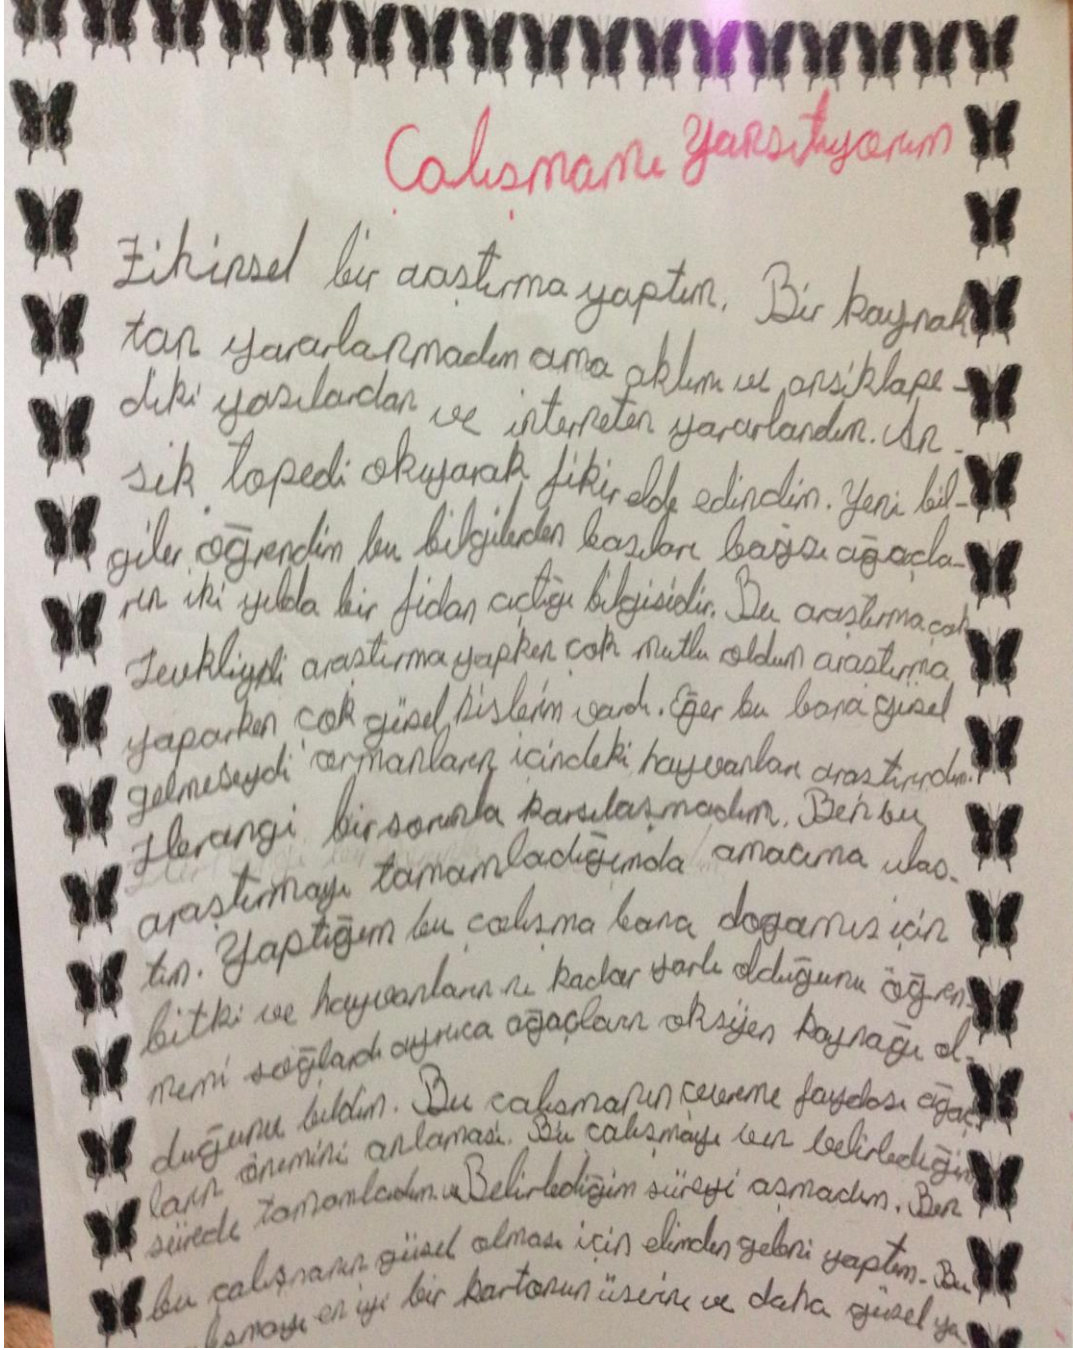 Çalışmamı Yansıtıyorum
Zihinsel bir araştırma yaptım. Bir kaynak
tan yararlanmadım ama aklım ve ansiklape-
diki yazılardan ve interneten yararlandım. An-
sik lopedi okuyarak fikir elde edindim. Yeni bil-
giler öğrendim bu bilgilerden bazıları bağzı ağaçla-
rın iki yılda bir fidan açtığı bilgisidir. Bu araştırma çok
zevkliydi araştırma yapken çok mutlu oldum araştırma
yaparken çok güzel hislerim vardı. Eğer bu bana güzel
gelmeseydi ormanların içindeki hayvanları araştırırdım.
Herangi bir sorunla karşılaşmadım. Ben bu
araştırmayı tamamladığımda amacıma ulaş-
tım. Yaptığım bu çalışma bana doğamız için
bitki ve hayvanların ne kadar şarlı olduğunu öğren-
memi sağladı ayrıca ağaçların oksijen kaynağı ol-
duğunu bildim. Bu çalışmanın çevreme faydası ağaç
ların önemini anlaması. Bu çalışmayı ben belirlediğim
sürede tamamladım. Belirlediğim süreyi aşmadım. Ben
bu çalışmanın güzel olması için elimden geleni yaptım. Bu
en iyi bir kartonun üzerine ve daha güzel ya